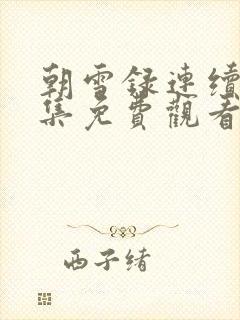 朝雪録連續
集免費觀看
西子绪